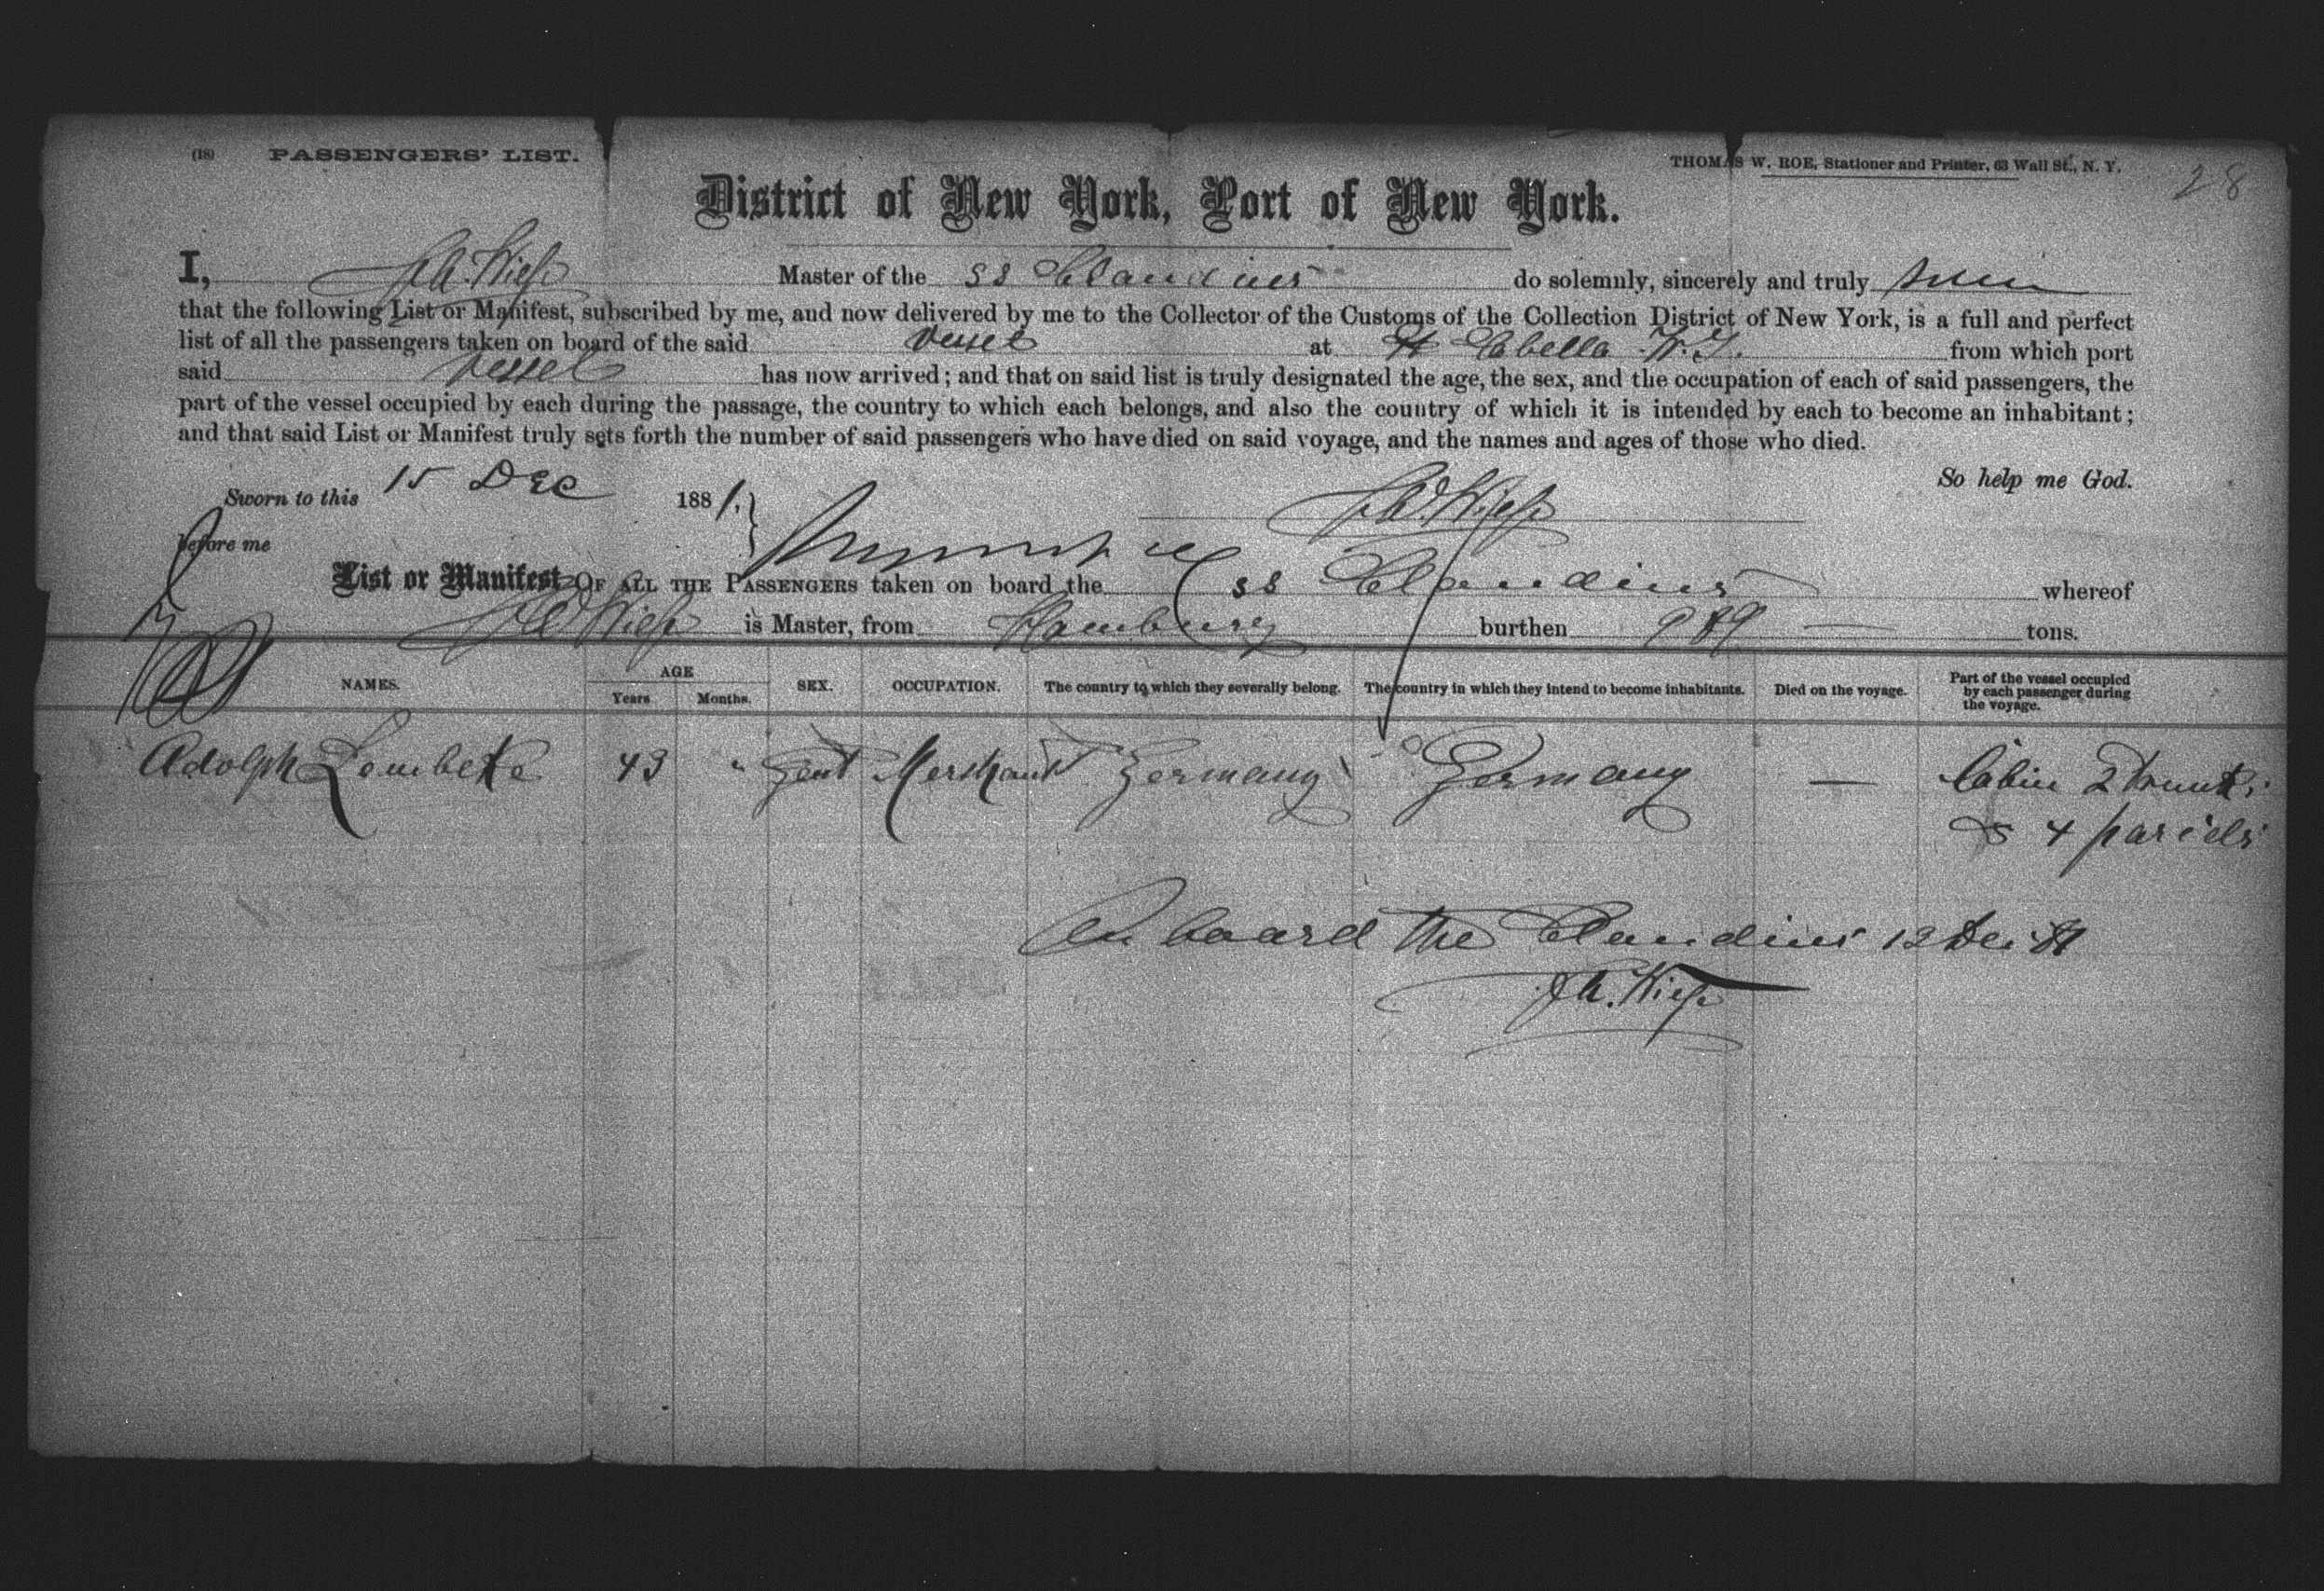 (18) PASSENGERS' LIST.
THOMAS W. ROE, Stationer and Printer, 63 Wall St., N. Y.
28
District of New York, Port of New York.
I, Master of the SS Claudius do solemnly, sincerely and truly
that the following List or Manifest, subscribed by me, and now delivered by me to the Collector of the Customs of the Collection District of New York, is a full and perfect
list of all the passengers taken on board of the said vessel at Cabello from which port
said vessel has now arrived; and that on said list is truly designated the age, the sex, and the occupation of each of said passengers, the
part of the vessel occupied by each during the passage, the country to which each belongs, and also the country of which it is intended by each to become an inhabitant;
and that said List or Manifest truly sets forth the number of said passengers who have died on said voyage, and the names and ages of those who died.
So help me God.
Sworn to this 15 Dec 1881.
before me
List or Manifest OF ALL THE PASSENGERS taken on board the SS Claudius whereof
is Master, from Hamburg burthen tons.
NAMES. AGE Years Months. SEX. OCCUPATION. The country to which they severally belong. The country in which they intend to become inhabitants. Died on the voyage. Part of the vessel occupied by each passenger during the voyage.
Adolph Lembcke 43 " Gent Merchant Germany Germany — Cabin 2 Trunks
& 4 parcels
On board the Claudius 12 Dec 81